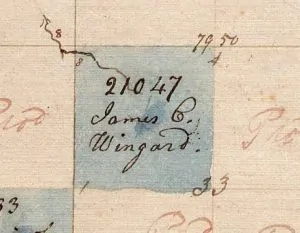 8
8
79 50
4
21047
James C.
Wingard.
33
33